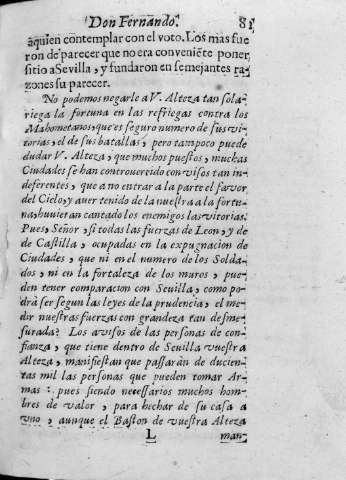 Don Fernando. 81
aquien contemplar con el voto. Los mas fue
ron de parecer que no era conveniẽte poner
sitio a Sevilla, y fundaron en semejantes ra-
zones su parecer.
No podemos negarle a V. Alteza tan sola-
riega la fortuna en las refriegas contra los
Mahometanos, que es seguro numero de sus vi-
torias, el de sus batallas, pero tampoco puede
dudar V. Alteza, que muchos puestos, muchas
Ciudades se han controvercido con visos tan in-
deferentes, que a no entrar a la parte el favor
del Cielo, y aver tenido de la nuestra a la fortu-
na, huvieran cantado los enemigos las vitorias.
Pues, Señor, si todas las fuerzas de Leon, y de
de Castilla, ocupadas en la expugnacion de
Ciudades, que ni en el numero de los Solda-
dos, ni en la fortaleza de los muros, pue-
den tener comparacion con Sevilla, como po-
drà ser segun las leyes de la prudencia, el me-
dir nuestras fuerzas con grandeza tan desme-
surada? Los avisos de las personas de con-
fianza, que tiene dentro de Sevilla vuestra
Alteza, manifiestan que passaràn de ducien-
tas mil las personas que pueden tomar Ar-
mas: pues siendo necessarios muchos hom-
bres de valor, para hechar de su casa a
vno, aunque el Baston de vuestra Alteza
L man-